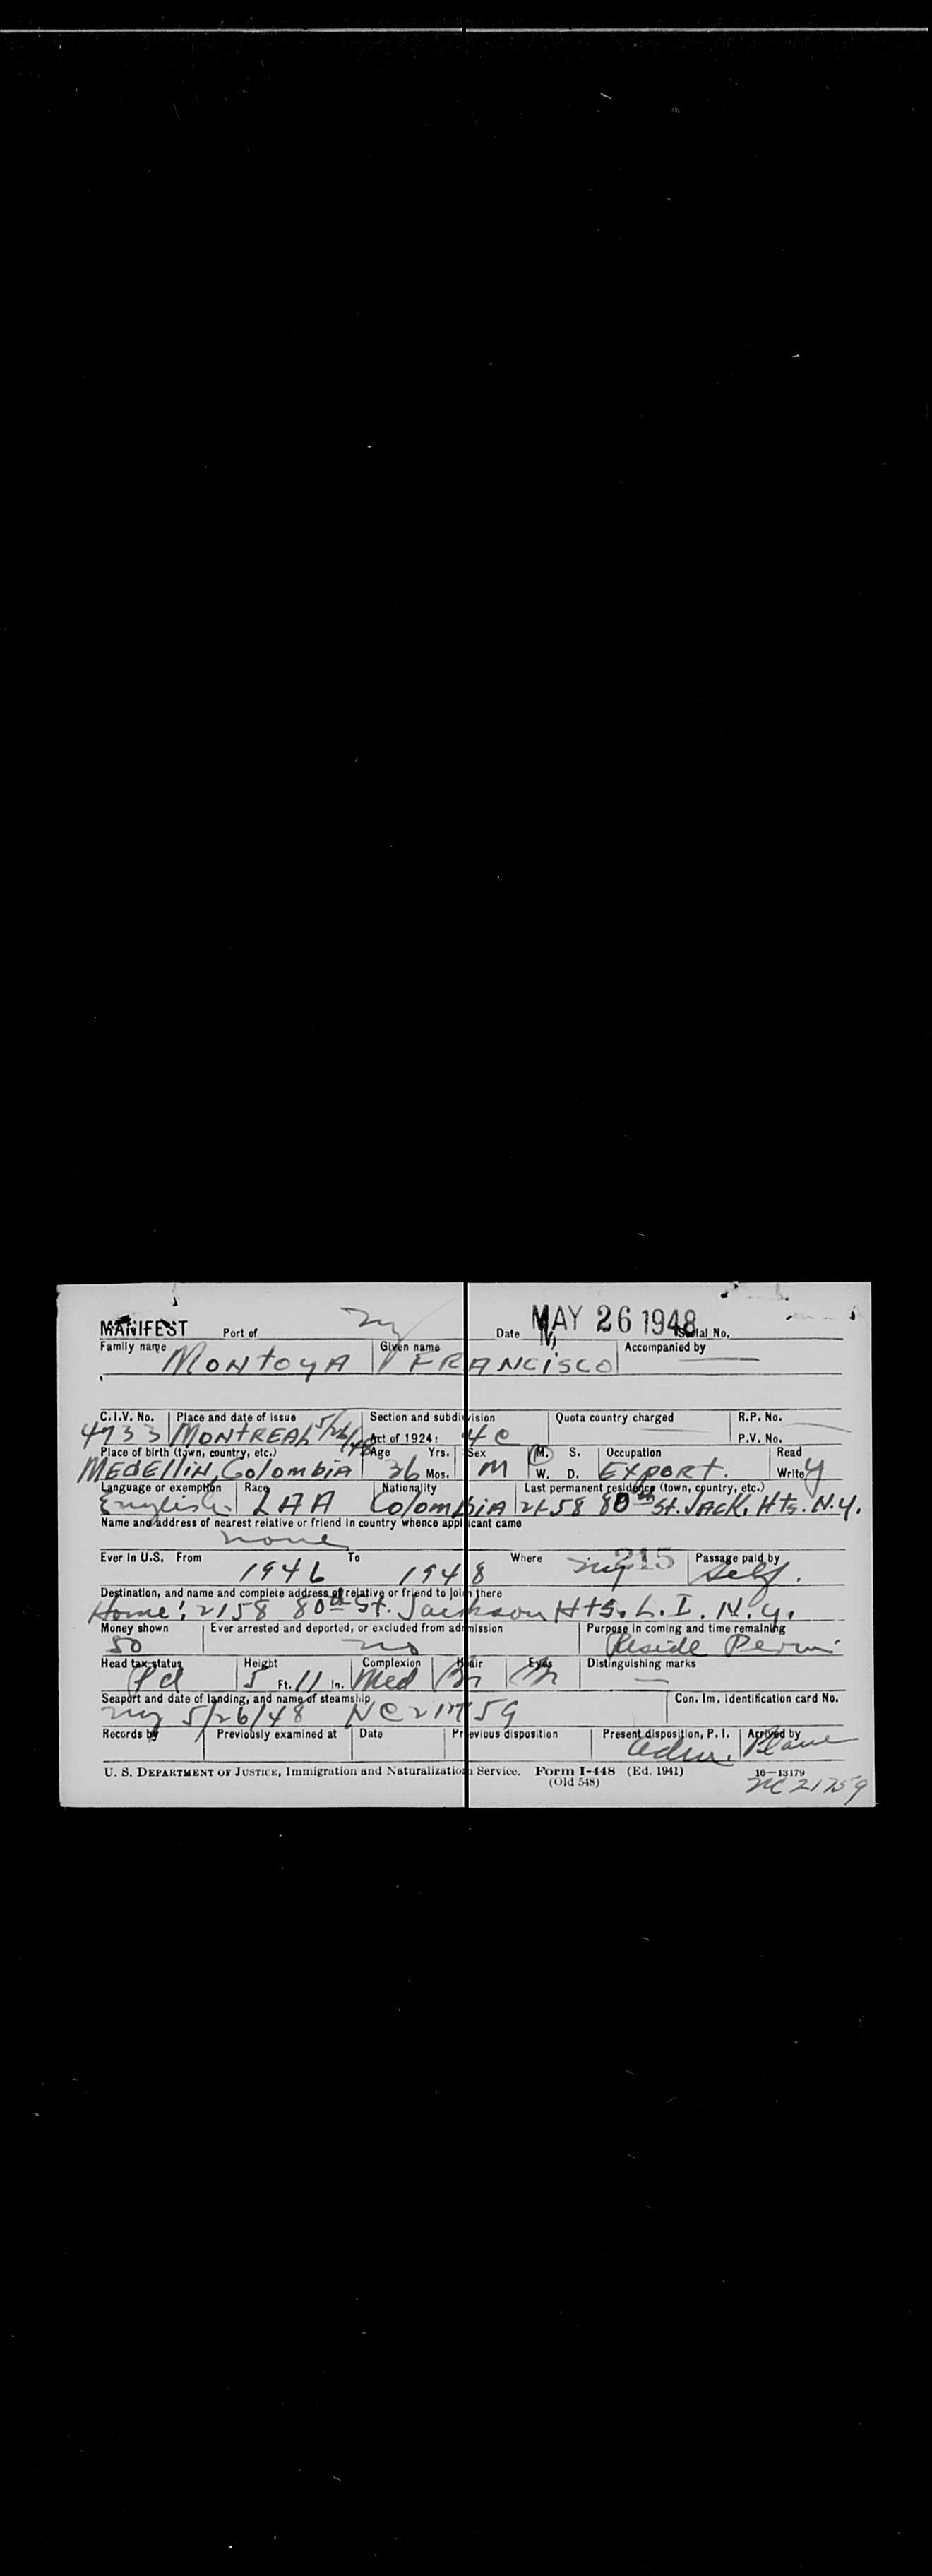 MANIFEST Port of NY Date MAY 26 1948 Serial No.
Family name MONTOYA Given name FRANCISCO Accompanied by
C.I.V. No. 4733 Place and date of issue MONTREAL 5/26/48 Section and subdivision Act of 1924: 4C Quota country charged R.P. No.
P.V. No.
Place of birth (town, country, etc.) MEDELLIN, Colombia Age 36 Yrs. Mos. Sex M M. S. W. D. Occupation EXPORT. Read Write y
Language or exemption English Race LAA Nationality Colombia Last permanent residence (town, country, etc.) 2158 80th St. JACK. Hts. N.Y.
Name and address of nearest relative or friend in country whence applicant came
none
Ever in U.S. From 1946 To 1948 Where NY 215 Passage paid by Self.
Destination, and name and complete address of relative or friend to join there
Home: 2158 80th St. Jackson Hts. L. I. N.Y.
Money shown 50 Ever arrested and deported, or excluded from admission no Purpose in coming and time remaining Reside Perm
Head tax status Pd Height 5 Ft. 11 In. Complexion Med Hair Br Eyes Br Distinguishing marks —
Seaport and date of landing, and name of steamship NY 5/26/48 Con. Im. Identification card No.
Records by Previously examined at Date Previous disposition Present disposition, P. I. adm. Arrived by Plane
U. S. DEPARTMENT OF JUSTICE, Immigration and Naturalization Service. Form I-448 (Ed. 1941) 16—13179
(Old 548)